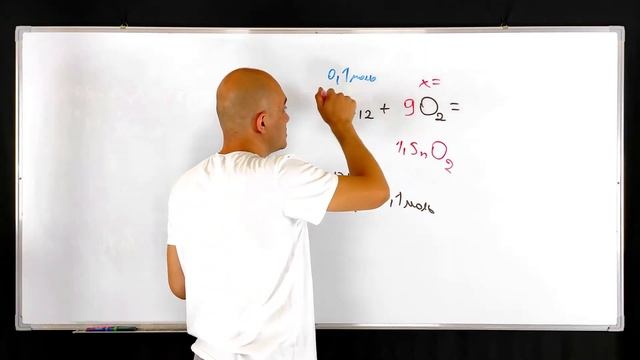 0,1 моль
x=
12 + 9O₂ =
1,5n O₂
,1 моль